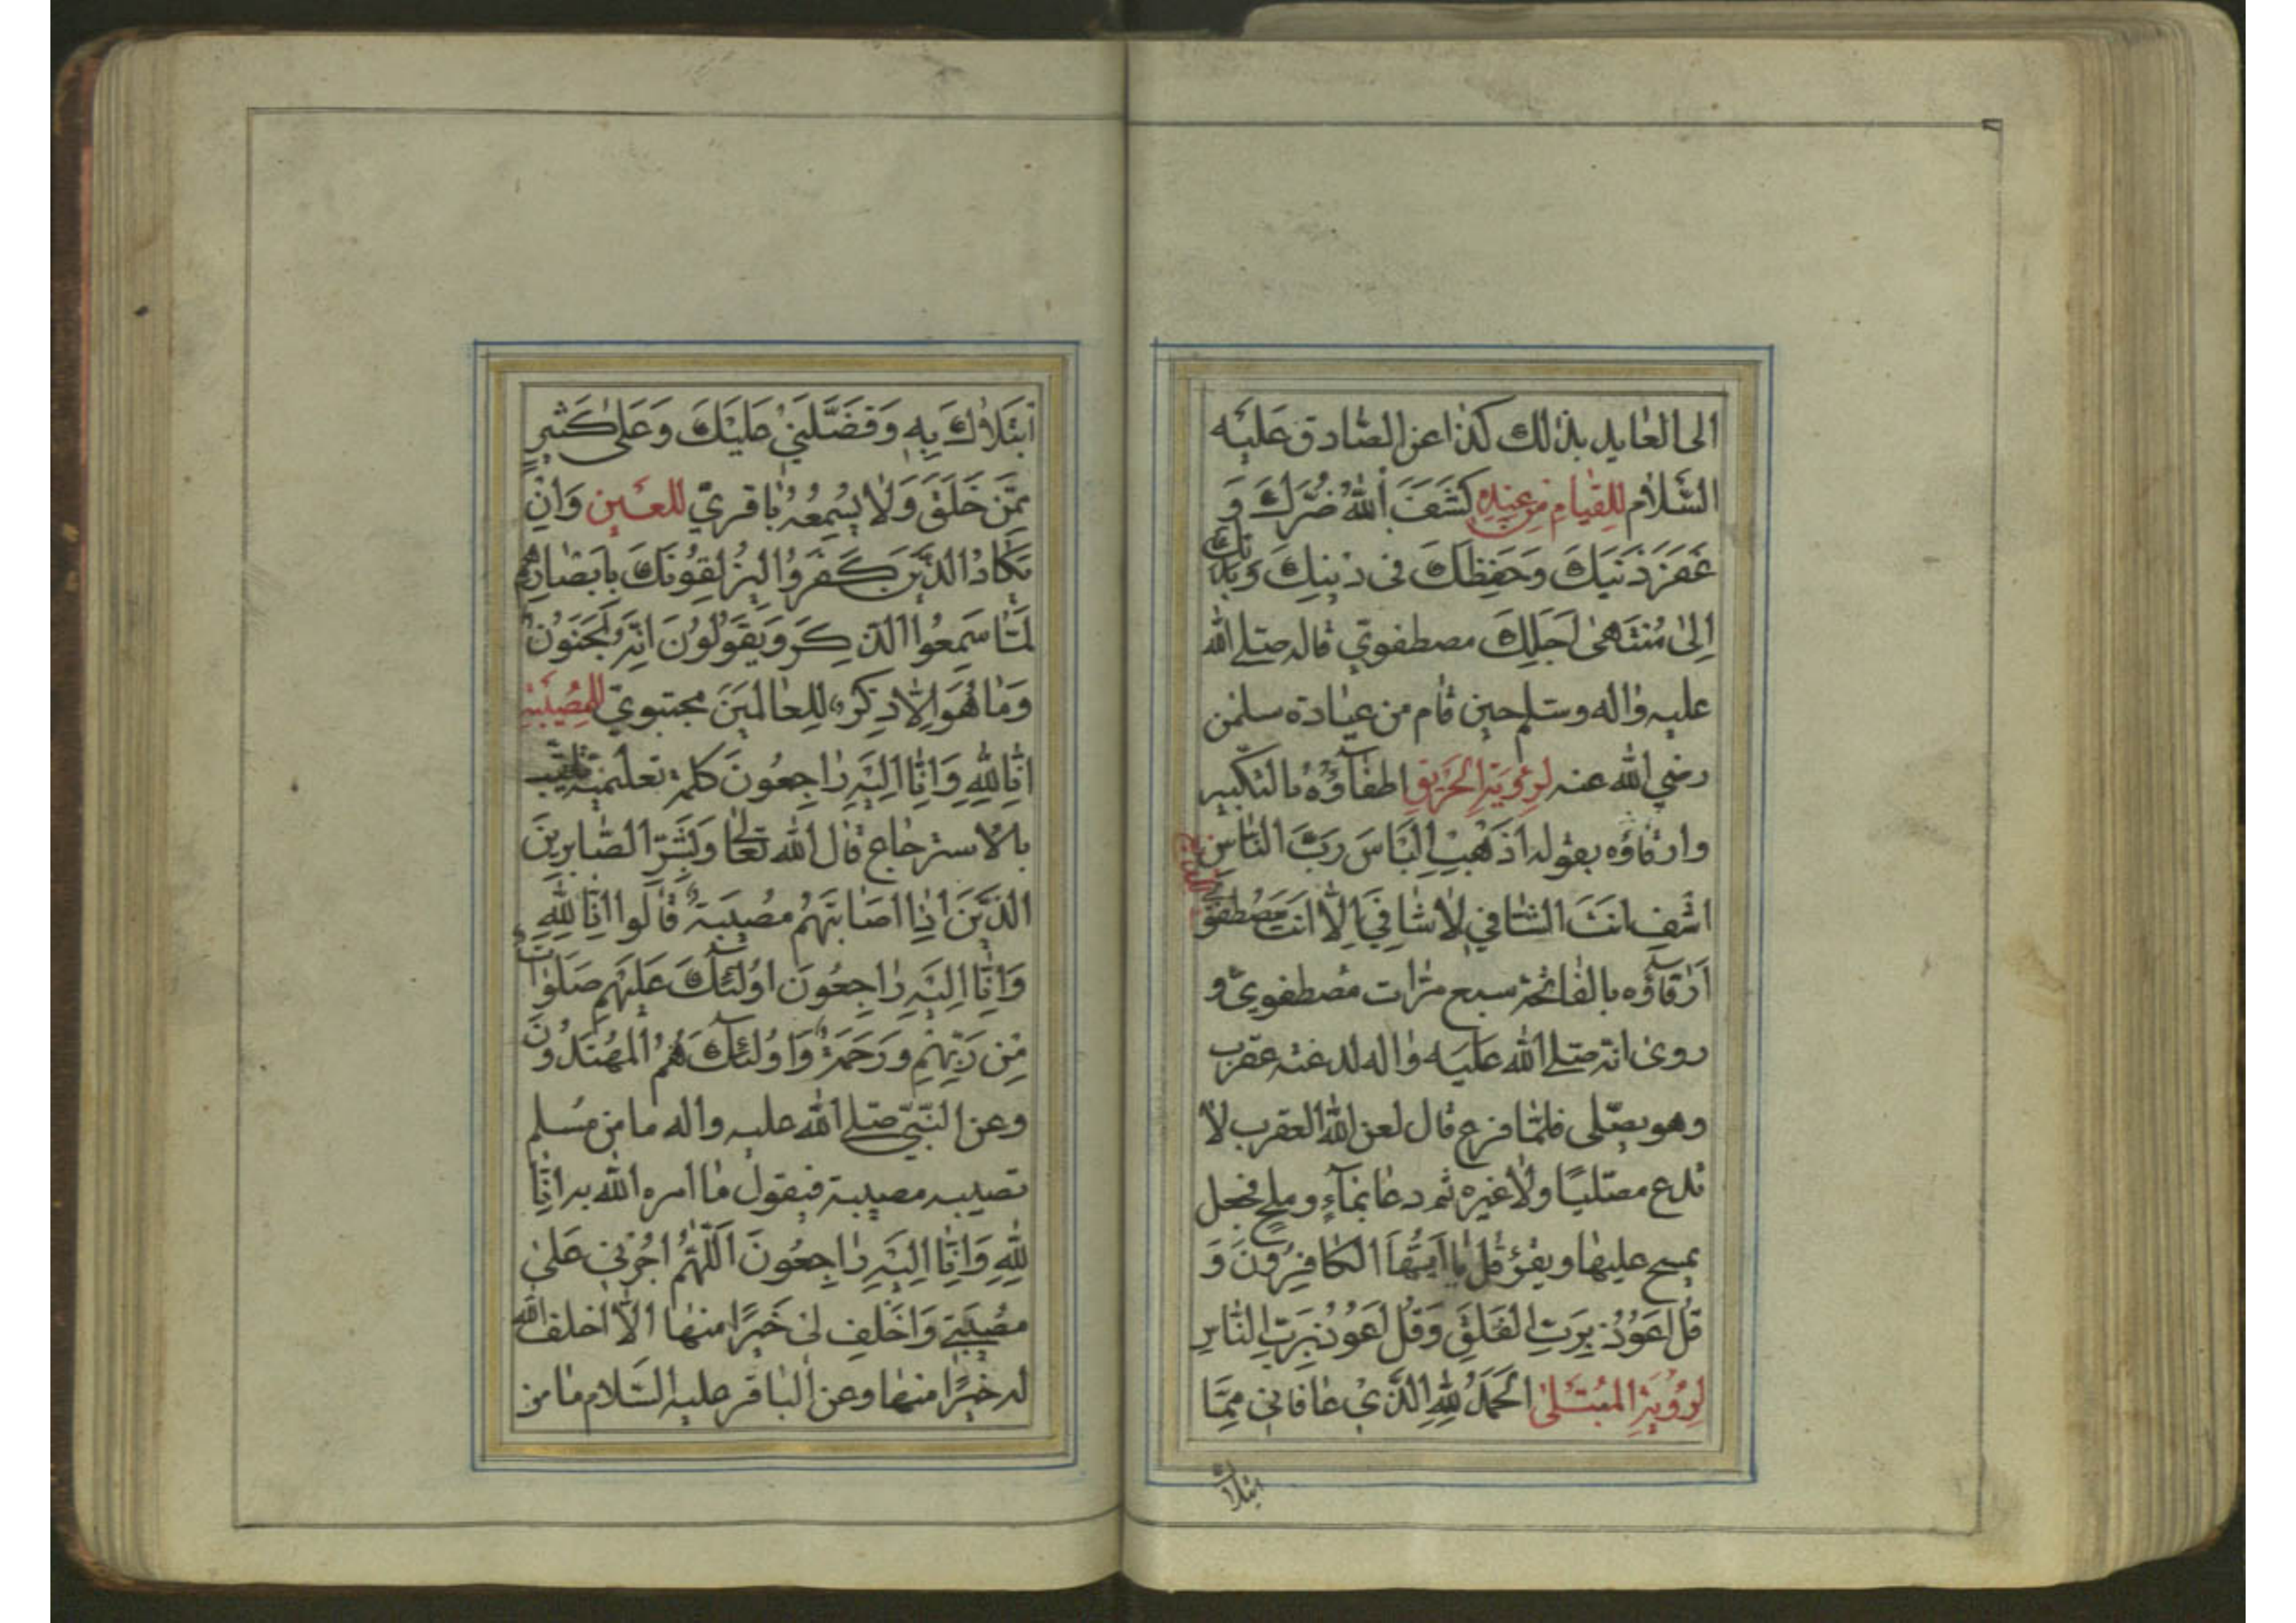 الى العايد بذلك كذا عن الصادق عَلَيْه
السَّلام لِلقيامِ مِن عِندِه كَشَفَ اَللهُ ضُرَّكَ وَ
غَفَرَ ذَنْبَكَ وَحَفِظَكَ فى دينِكَ وَبَدَنِكَ
اِلىٰ مُنْتَهىٰ اَجَلِكَ مصطفوي قاله صلى الله
عليه واله وسلم حين قام من عيادة سلمن
رضي الله عنه لِرُؤْيَةِ الحَريقِ اطفاؤُهُ بالتكبير
وارقاؤه بقوله اذْهِبِ البَاسَ رَبَّ النّاسِ
اشْفِ انْتَ الشافي لا شافِيَ اِلاّ انتَ مصطفو
ارقاؤه بالفاتحة سبع مرات مصطفوي و
روى انه صلى الله عليه واله لدغته عقرب
وهو يصلى فلما فرغ قال لعن الله العقرب لا
تدع مصليًا ولا غيره ثم دعا بماءٍ وملح فجعل
يمسح عليها ويقرؤ قُل يا اَيُّهَا الكافِرُونَ وَ
قُل اَعُوذُ بِرَبِّ الفَلَقِ وَقُل اَعُوذُ بِرَبِّ النّاسِ
لِرُؤْيَةِ المُبْتَلىٰ الحَمدُ لِلّهِ الَّذي عافاني مِمَّا
ابتلاك
اَبْتَلاكَ بِهِ وَفَضَّلَني عَلَيْكَ وَعَلىٰ كَثيرٍ
مِمَّن خَلَقَ وَلا يُسْمِعُهُ باقريّ للعَينِ وَانِ
يَكادُ الذَّينَ كَفَرُوا ليُزْلِقُونَكَ بِاَبْصارِهِم
لَمّا سَمِعُوا الذِكرَ وَيَقُولُونَ انّهُ لَمَجنُونٌ
وَما هُوَ اِلاّ ذِكرٌ لِلعالَمينَ مجتبويّ للمُصيبَةِ
انّا لِلّهِ وَانّا اِلَيْهِ راجِعُونَ كلمة تعليمية
بالاسترجاع قال الله تعالى وَبَشِّرِ الصّابِرينَ
الذَّينَ اِذا اصابَتهُم مُصيبَةٌ قالُوا انّا لِلّهِ
وَانّا اِلَيْهِ راجِعُونَ اوُلئِكَ عَلَيْهِم صَلَواتٌ
مِن رَبِّهِم وَرَحمَةٌ وَاوُلئِكَ هُمُ المُهتَدُونَ
وعن النّبيّ صلى الله عليه واله ما من مُسلم
تصيبه مصيبة فيقول ما امره الله به انّا
لِلّهِ وَانّا اِلَيْهِ راجِعُونَ اَللّهُمَّ اجُرْني عَلىٰ
مُصيبَتي وَاخْلِف لى خَيرًا منها الاّ اخلف الله
له خيرًا منها وعن الباقر عليه السّلام ما من